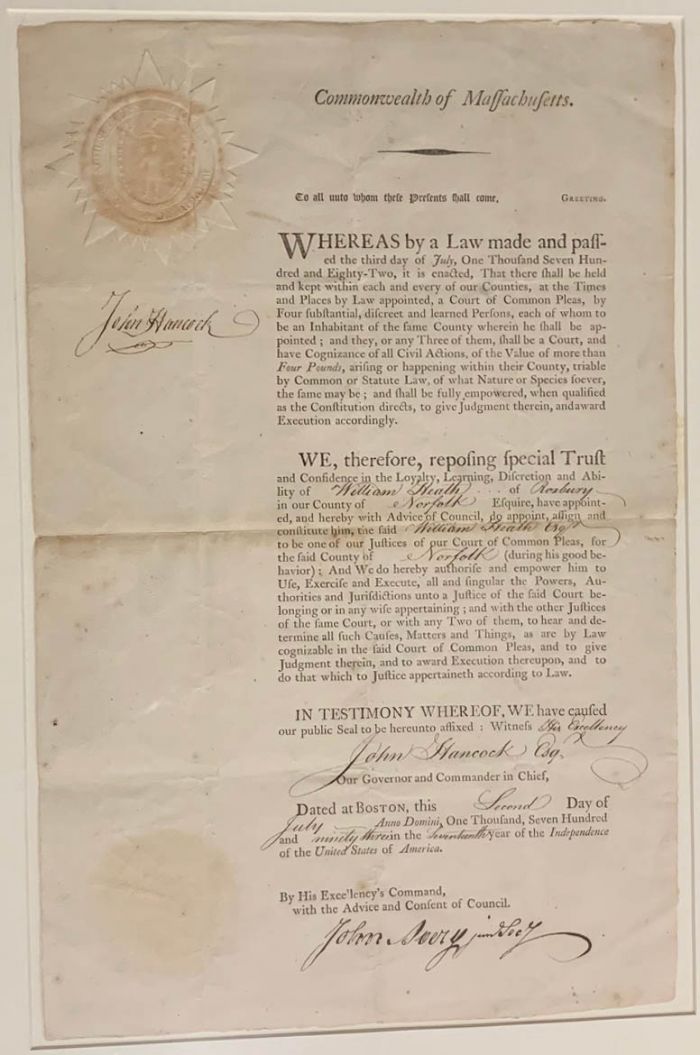 Commonwealth of Maſſachuſetts.
To all unto whom theſe Preſents ſhall come, GREETING.
John Hancock
WHEREAS by a Law made and paſſ-
ed the third day of July, One Thouſand Seven Hun-
dred and Eighty-Two, it is enacted, That there ſhall be held
and kept within each and every of our Counties, at the Times
and Places by Law appointed, a Court of Common Pleas, by
Four ſubſtantial, diſcreet and learned Perſons, each of whom to
be an Inhabitant of the ſame County wherein he ſhall be ap-
pointed ; and they, or any Three of them, ſhall be a Court, and
have Cognizance of all Civil Actions, of the Value of more than
Four Pounds, ariſing or happening within their County, triable
by Common or Statute Law, of what Nature or Species ſoever,
the ſame may be ; and ſhall be fully empowered, when qualified
as the Conſtitution directs, to give Judgment therein, andaward
Execution accordingly.
WE, therefore, repoſing ſpecial Truſt
and Confidence in the Loyalty, Learning, Diſcretion and Abi-
lity of William Heath of Roxbury
in our County of Norfolk Eſquire, have appoint-
ed, and hereby with Advice of Council, do appoint, aſſign and
conſtitute him, the ſaid William Heath Esqr
to be one of our Juſtices of our Court of Common Pleas, for
the ſaid County of Norfolk (during his good be-
havior) ; And We do hereby authoriſe and empower him to
Uſe, Exerciſe and Execute, all and ſingular the Powers, Au-
thorities and Juriſdictions unto a Juſtice of the ſaid Court be-
longing or in any wiſe appertaining ; and with the other Juſtices
of the ſame Court, or with any Two of them, to hear and de-
termine all ſuch Cauſes, Matters and Things, as are by Law
cognizable in the ſaid Court of Common Pleas, and to give
Judgment therein, and to award Execution thereupon, and to
do that which to Juſtice appertaineth according to Law.
IN TESTIMONY WHEREOF, WE have cauſed
our public Seal to be hereunto affixed : Witneſs His Excellency
John Hancock Esqr
Our Governor and Commander in Chief,
Dated at BOSTON, this Second Day of
July Anno Domini, One Thouſand, Seven Hundred
and ninety three in the Seventeenth year of the Independence
of the United States of America.
By His Exce'lency's Command,
with the Advice and Conſent of Council.
John Avery junr Secy